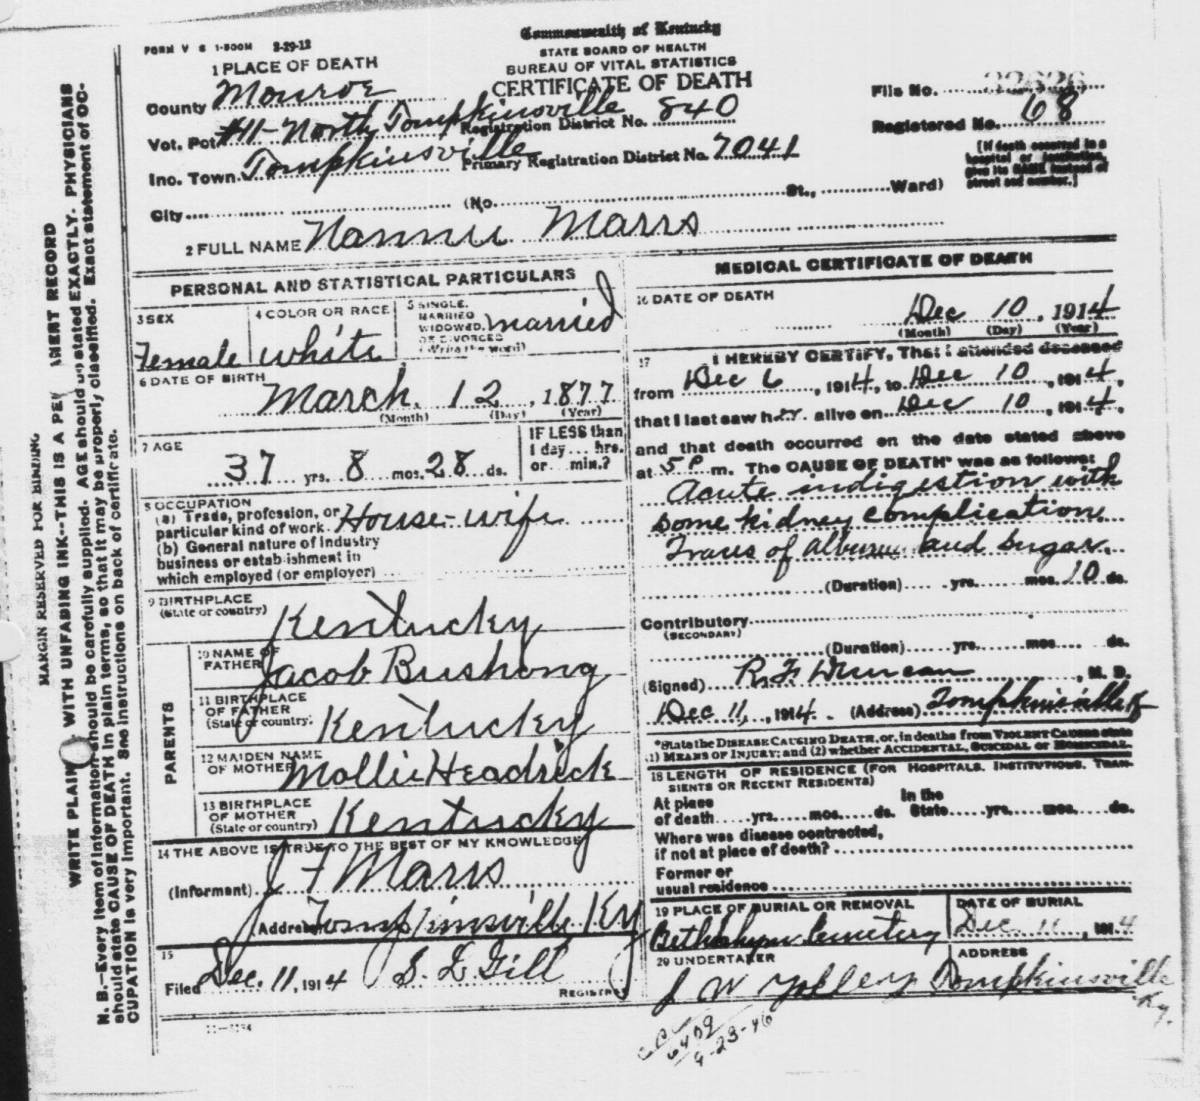 Commonwealth of Kentucky
FORM V S 1-500M 8-29-12
STATE BOARD OF HEALTH
BUREAU OF VITAL STATISTICS
CERTIFICATE OF DEATH
1 PLACE OF DEATH
County Monroe
Vot. Pct #11-North Tompkinsville Registration District No. 840
Inc. Town Tompkinsville Primary Registration District No. 7041
City (No. St., Ward)
File No. 22626
Registered No. 68
[If death occurred in a
hospital or institution,
give its NAME instead of
street and number.]
2 FULL NAME Nannie Marrs
PERSONAL AND STATISTICAL PARTICULARS
3 SEX
Female
4 COLOR OR RACE
White
5 SINGLE,
MARRIED
WIDOWED,
OR DIVORCED
(Write the word)
married
6 DATE OF BIRTH
March 12, 1877
(Month) (Day) (Year)
7 AGE
37 yrs. 8 mos. 28 ds.
IF LESS than
1 day... hrs.
or... min.?
8 OCCUPATION
(a) Trade, profession, or
particular kind of work House-wife
(b) General nature of industry
business or establishment in
which employed (or employer)
9 BIRTHPLACE
(State or country)
Kentucky
PARENTS
10 NAME OF
FATHER
Jacob Bushong
11 BIRTHPLACE
OF FATHER
(State or country)
Kentucky
12 MAIDEN NAME
OF MOTHER
Mollie Headrick
13 BIRTHPLACE
OF MOTHER
(State or country)
Kentucky
14 THE ABOVE IS TRUE TO THE BEST OF MY KNOWLEDGE
(Informant) J F Marrs
Address Tompkinsville Ky
15
Filed Dec. 11, 1914 S. E. Gill
REGISTRAR
11-3184
MEDICAL CERTIFICATE OF DEATH
16 DATE OF DEATH
Dec 10, 1914
(Month) (Day) (Year)
17 I HEREBY CERTIFY, That I attended deceased
from Dec 6, 1914, to Dec 10, 1914,
that I last saw her alive on Dec 10, 1914,
and that death occurred on the date stated above
at 5 P m. The CAUSE OF DEATH* was as follows:
Acute indigestion with
some kidney complication.
Traces of albumen and sugar.
(Duration) yrs. mos. 10 ds.
Contributory
(SECONDARY)
(Duration) yrs. mos. ds.
(Signed) R. F. Duncan, M. D.
Dec 11, 1914. (Address) Tompkinsville Ky
*State the DISEASE CAUSING DEATH, or, in deaths from VIOLENT CAUSES state
(1) MEANS OF INJURY; and (2) whether ACCIDENTAL, SUICIDAL or HOMICIDAL.
18 LENGTH OF RESIDENCE (FOR HOSPITALS, INSTITUTIONS, TRAN-
SIENTS OR RECENT RESIDENTS)
At place
of death yrs. mos. ds.
In the
State yrs. mos. ds.
Where was disease contracted,
if not at place of death?
Former or
usual residence
19 PLACE OF BURIAL OR REMOVAL
Cemetery
DATE OF BURIAL
Dec. 11, 1914
20 UNDERTAKER
J W
ADDRESS
Tompkinsville
Ky.
6409
9-23-46
MARGIN RESERVED FOR BINDING
WRITE PLAIN WITH UNFADING INK--THIS IS A PE ANENT RECORD
N. B.—Every item of information should be carefully supplied. AGE should be stated EXACTLY. PHYSICIANS
should state CAUSE OF DEATH in plain terms, so that it may be properly classified. Exact statement of OC-
CUPATION is very important. See instructions on back of certificate.